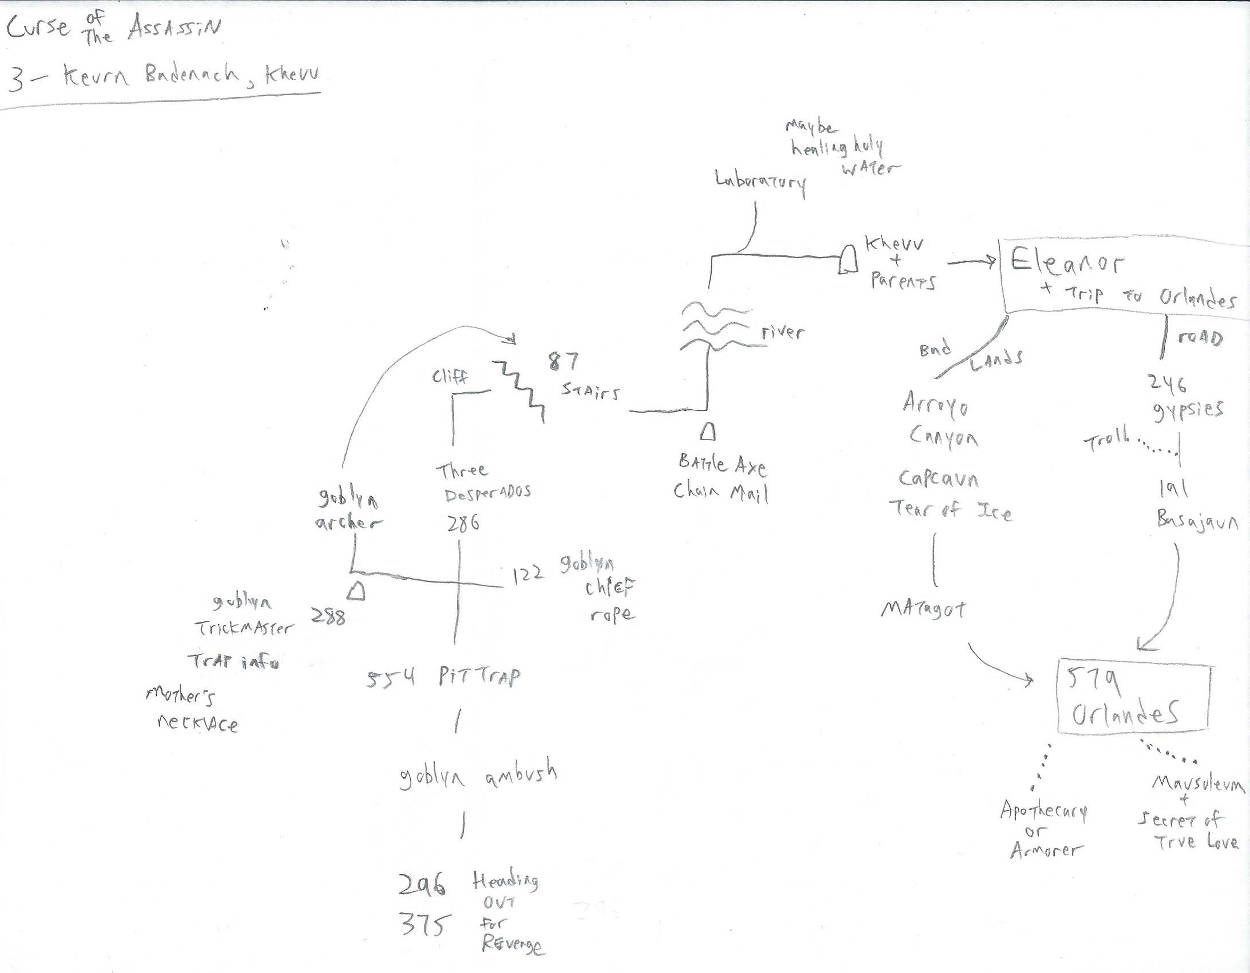 Curse of The Assassin
3 - Kevrn Badenach, Khevv
Maybe
healing holy
water
Laboratory
Khevv
+
Parents
Eleanor
+ Trip to Orlandes
river
road
Bad
Lands
87
Stairs
Cliff
246
gypsies
Arroyo
Canyon
Troll
Battle Axe
Chain Mail
Three
Desperados
286
Capcavn
Tear of Ice
191
Basajaun
goblyn
archer
122 goblyn
chief
rope
goblyn
Trickmaster 288
Trap info
Mother's
necklace
Matagot
554 Pit Trap
579
Orlandes
goblyn ambush
Apothecary
or
Armorer
Mausoleum
+
Secret of
True Love
296 Heading
out
375 for
Revenge